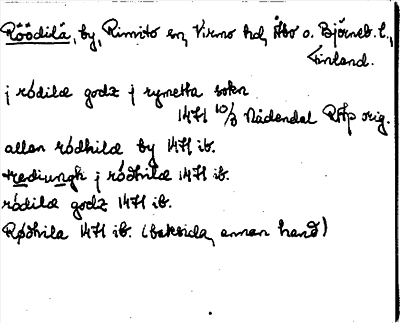 Röödilä, by, Rimito sn, Virmo hd, Åbo o. Björneb. l.,
Finland.
j rödilæ godz j rymetta sokn
1471 10/3 Nådendal RAp orig.
allan rödhilæ by 1471 ib.
trediungh j rödhilæ 1471 ib.
rödilæ godz 1471 ib.
Rødhila 1471 ib. (baksida, annan hand)